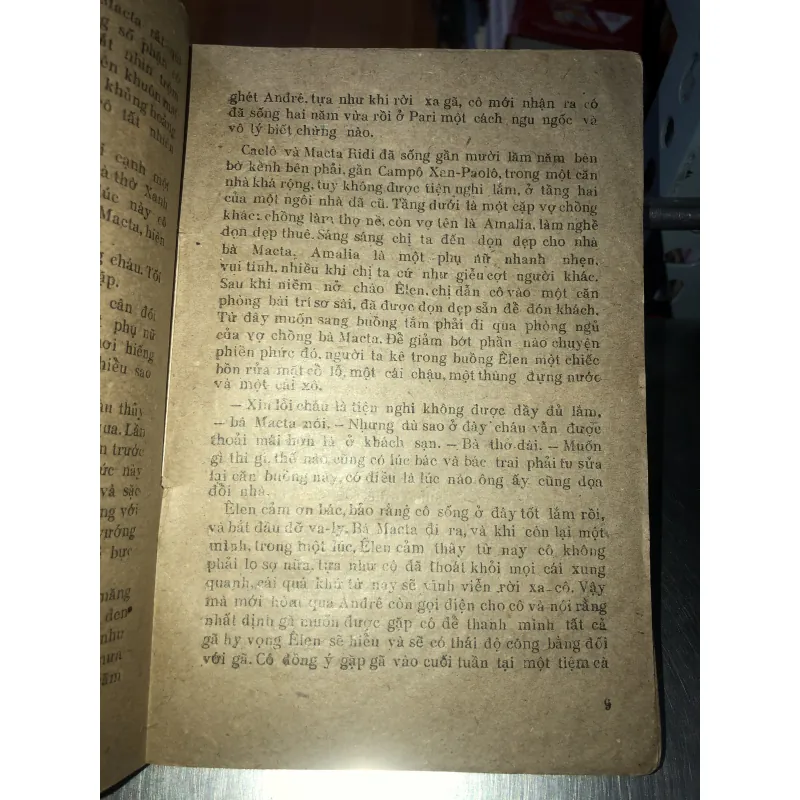 Macta tất, vừa
g số phận cô
ất nhìn trộm
ên khuôn mặt
không hoảng
ô tất nhiên
i cạnh một
à thờ Xanh
lúc này cô
Macta, hiện
g cháu. Tôi
ập.
cân đối
phụ nữ
ơi hiếng
hiều sao
àn thủy
ua. Lần
n trước
ức này
và sắc
ng với
vướng
ẽ bực
măng
den
như
ưa
ăm
ghét André, tựa như khi rời xa gã, cô mới nhận ra cô
đã sống hai năm vừa rồi ở Pari một cách ngu ngốc và
vô lý biết chừng nào.
Caclô và Macta Ridi đã sống gần mười lăm năm bên
bờ kênh bên phải, gần Campô Xan-Paolô, trong một căn
nhà khá rộng, tuy không được tiện nghi lắm, ở tầng hai
của một ngôi nhà đã cũ. Tầng dưới là một cặp vợ chồng
khác: chồng làm thợ nề, còn vợ tên là Amalia, làm nghề
dọn dẹp thuê. Sáng sáng chị ta đến dọn dẹp cho nhà
bà Macta. Amalia là một phụ nữ nhanh nhẹn,
vui tính, nhiều khi chị ta cứ như giễu cợt người khác.
Sau khi niềm nở chào Êlen, chị dẫn cô vào một căn
phòng bài trí sơ sài, đã được dọn dẹp sẵn để đón khách.
Từ đây muốn sang buồng tắm phải đi qua phòng ngủ
của vợ chồng bà Macta. Để giảm bớt phần nào chuyện
phiền phức đó, người ta kê trong buồng Êlen một chiếc
bồn rửa mặt cổ lỗ, một cái chậu, một thùng đựng nước
và một cái xô.
— Xin lỗi cháu là tiện nghi không được đầy đủ lắm,
— bà Macta nói. — Nhưng dù sao ở đây cháu vẫn được
thoải mái hơn là ở khách sạn. — Bà thở dài. — Muốn
gì thì gì, thế nào cũng có lúc bác và bác trai phải tu sửa
lại căn buồng này, có điều là lúc nào ông ấy cũng dọa
đổi nhà.
Êlen cảm ơn bác, bảo rằng cô sống ở đây tốt lắm rồi,
và bắt đầu dỡ va-ly. Bà Macta đi ra, và khi còn lại một
mình, trong một lúc, Êlen cảm thấy từ nay cô không
phải lo sợ nữa, tựa như cô đã thoát khỏi mọi cái xung
quanh, cái quá khứ từ nay sẽ vĩnh viễn rời xa cô. Vậy
mà mới hôm qua André còn gọi điện cho cô và nói rằng
nhất định gã muốn được gặp cô để thanh minh tất cả
gã hy vọng Êlen sẽ hiểu và sẽ có thái độ công bằng đối
với gã. Cô đồng ý gặp gã vào cuối tuần tại một tiệm cà
9